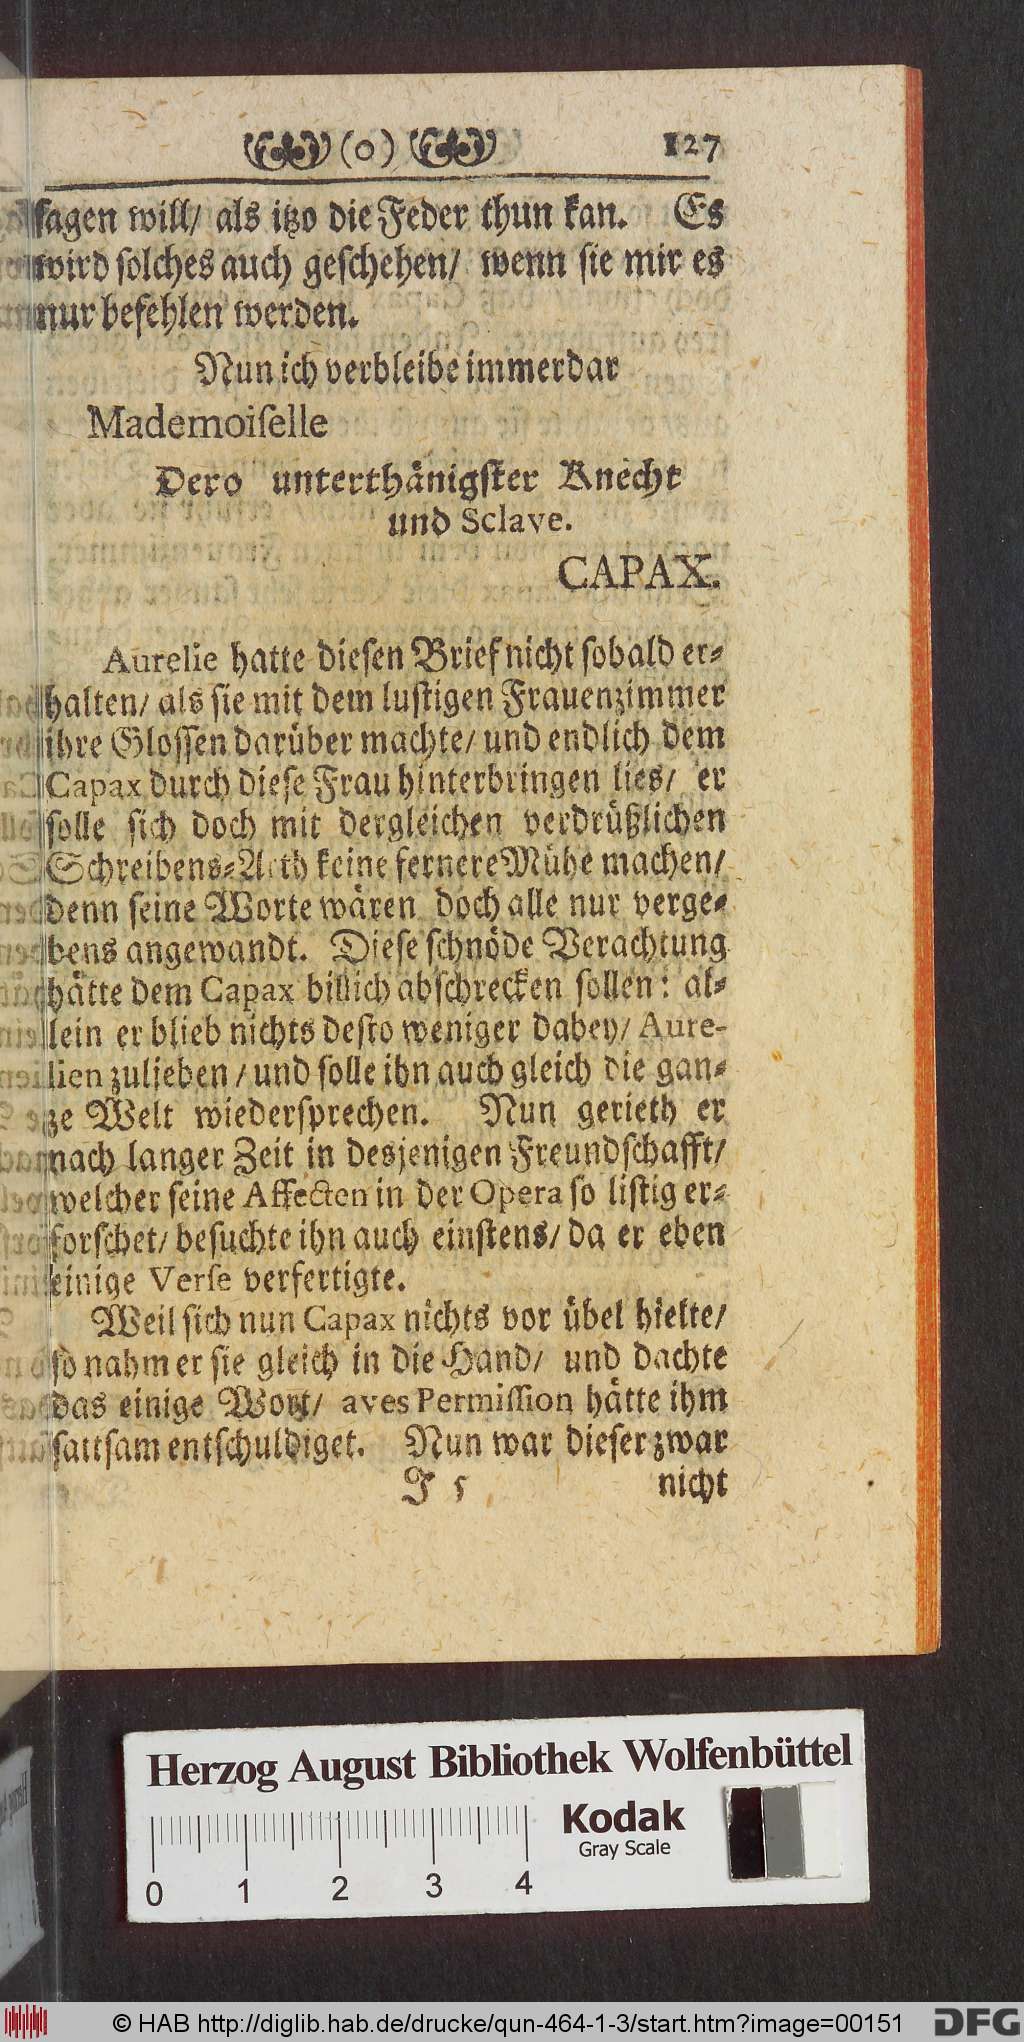 (o) 127
sagen will/ als itzo die Feder thun kan. Es
wird solches auch geschehen/ wenn sie mir es
nur befehlen werden.
Nun ich verbleibe immerdar
Mademoiselle
Dero unterthänigster Knecht
und Sclave.
CAPAX.
Aurelie hatte diesen Brief nicht sobald er-
halten/ als sie mit dem lustigen Frauenzimmer
ihre Glossen darüber machte/ und endlich dem
Capax durch diese Frau hinterbringen lies/ er
solle sich doch mit dergleichen verdrüßlichen
Schreibens-Arth keine fernere Mühe machen/
denn seine Worte wären doch alle nur verge-
bens angewandt. Diese schnöde Verachtung
hätte dem Capax billich abschrecken sollen: al-
lein er blieb nichts desto weniger dabey/ Aure-
lien zulieben/ und solle ihn auch gleich die gan-
ze Welt wiedersprechen. Nun gerieth er
nach langer Zeit in desjenigen Freundschafft/
welcher seine Affecten in der Opera so listig er-
forschet/ besuchte ihn auch einstens/ da er eben
einige Verse verfertigte.
Weil sich nun Capax nichts vor übel hielte/
so nahm er sie gleich in die Hand/ und dachte
das einige Wort/ aves Permission hätte ihm
sattsam entschuldiget. Nun war dieser zwar
J 5 nicht
Herzog August Bibliothek Wolfenbüttel
Kodak
Gray Scale
0 1 2 3 4
© HAB http://diglib.hab.de/drucke/qun-464-1-3/start.htm?image=00151 DFG